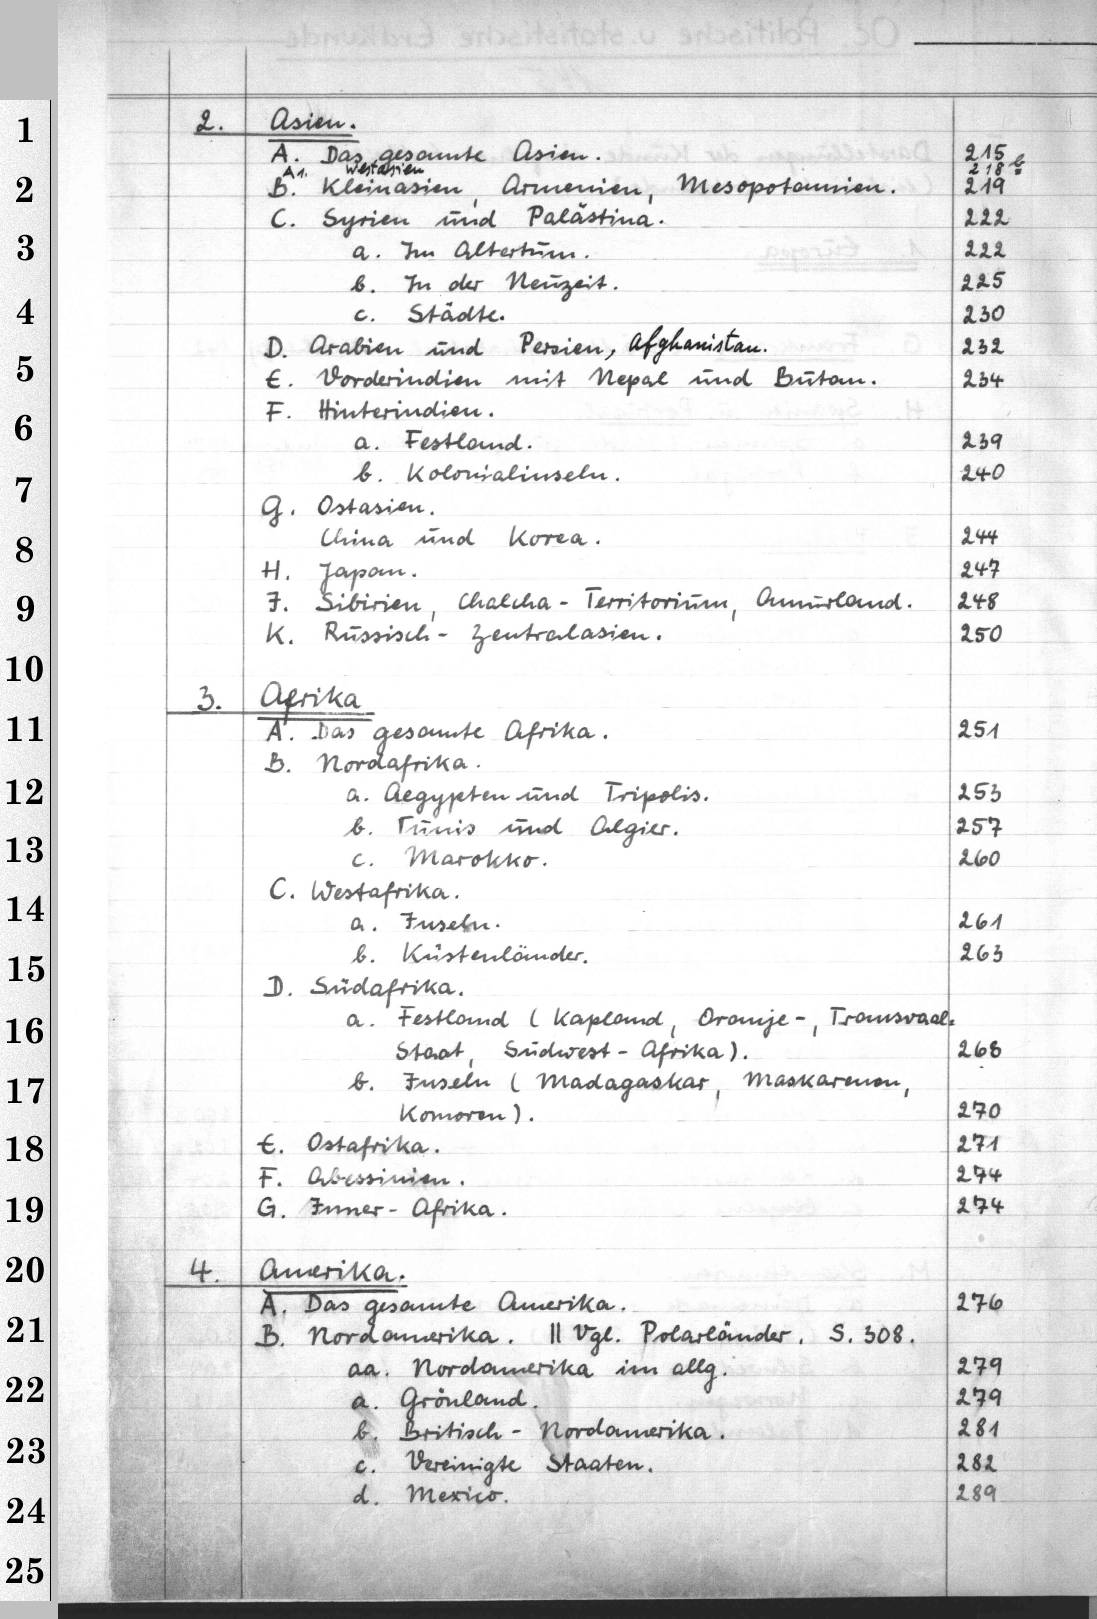 2. Asien.
A. Das gesamte Asien. 215
A1. Westasien 218 b
B. Kleinasien, Armenien, Mesopotamien. 219
C. Syrien und Palästina. 222
a. Im Altertum. 222
b. In der Neuzeit. 225
c. Städte. 230
D. Arabien und Persien, Afghanistan. 232
E. Vorderindien mit Nepal und Butan. 234
F. Hinterindien.
a. Festland. 239
b. Kolonialinseln. 240
G. Ostasien.
China und Korea. 244
H. Japan. 247
J. Sibirien, Chalcha-Territorium, Amurland. 248
K. Russisch-Zentralasien. 250
3. Afrika
A. Das gesamte Afrika. 251
B. Nordafrika.
a. Aegypten und Tripolis. 253
b. Tunis und Algier. 257
c. Marokko. 260
C. Westafrika.
a. Inseln. 261
b. Küstenländer. 263
D. Südafrika.
a. Festland (Kapland, Oranje-, Transvaal-
Staat, Südwest-Afrika). 268
b. Inseln (Madagaskar, Maskarenen,
Komoren). 270
E. Ostafrika. 271
F. Abessinien. 274
G. Inner-Afrika. 274
4. Amerika.
A. Das gesamte Amerika. 276
B. Nordamerika. || Vgl. Polarländer. S. 308.
aa. Nordamerika im allg. 279
a. Grönland. 279
b. Britisch-Nordamerika. 281
c. Vereinigte Staaten. 282
d. Mexico. 289
1
2
3
4
5
6
7
8
9
10
11
12
13
14
15
16
17
18
19
20
21
22
23
24
25